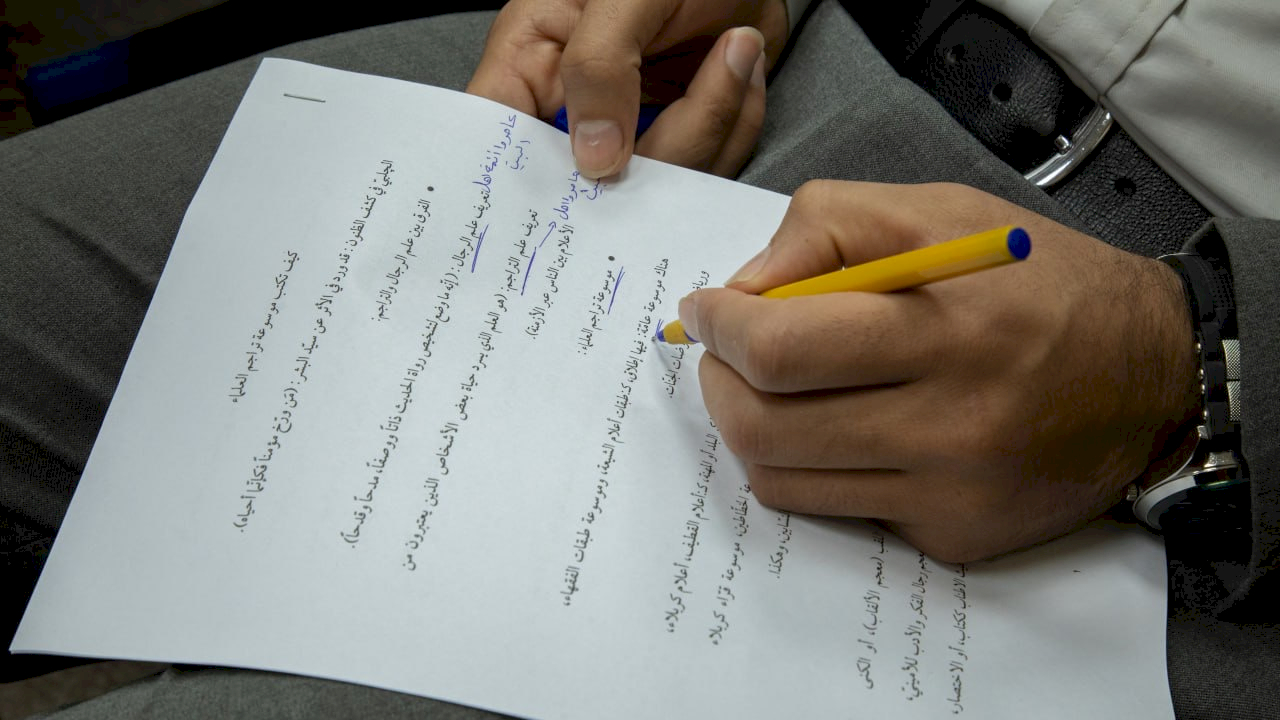 كيف تكتب موسوعة تراجم العلماء
الچلبيّ في كشف الظنون: قد ورد في الأثر عن سيّد البشر: (مَن ورّخ مؤمناً فكأنّما أحياه).
• الفرق بين علم الرجال والتراجم:
تعريف علم الرجال: (إنّه ما وضع لتشخيص رواة الحديث ذاتاً ووصفاً، مدحاً وقدحاً).
عاصروا أئمة اهل
البيت
تعريف علم التراجم: (هو العلم الذي يسرد حياة بعض الأشخاص الذين يعتبرون من
الأعلام بين الناس عبر الأزمنة).
عاصروا اهل
• موسوعة تراجم العلماء:
هناك موسوعة عامّة: فيها إطلاق، كـ: طبقات أعلام الشيعة، وموسوعة طبقات الفقهاء،
ورياض
روضات الجنّات.
البلد أو المهنة، كـ: أعلام القطيف، أعلام كربلاء،
الخطّاطين، موسوعة قرّاء كربلاء
وهكذا.
(معجم الألقاب)، أو الكنى
معجم رجال الفكر والأدب للأمينيّ،
الأطياب ككتاب، أو الاختصار،